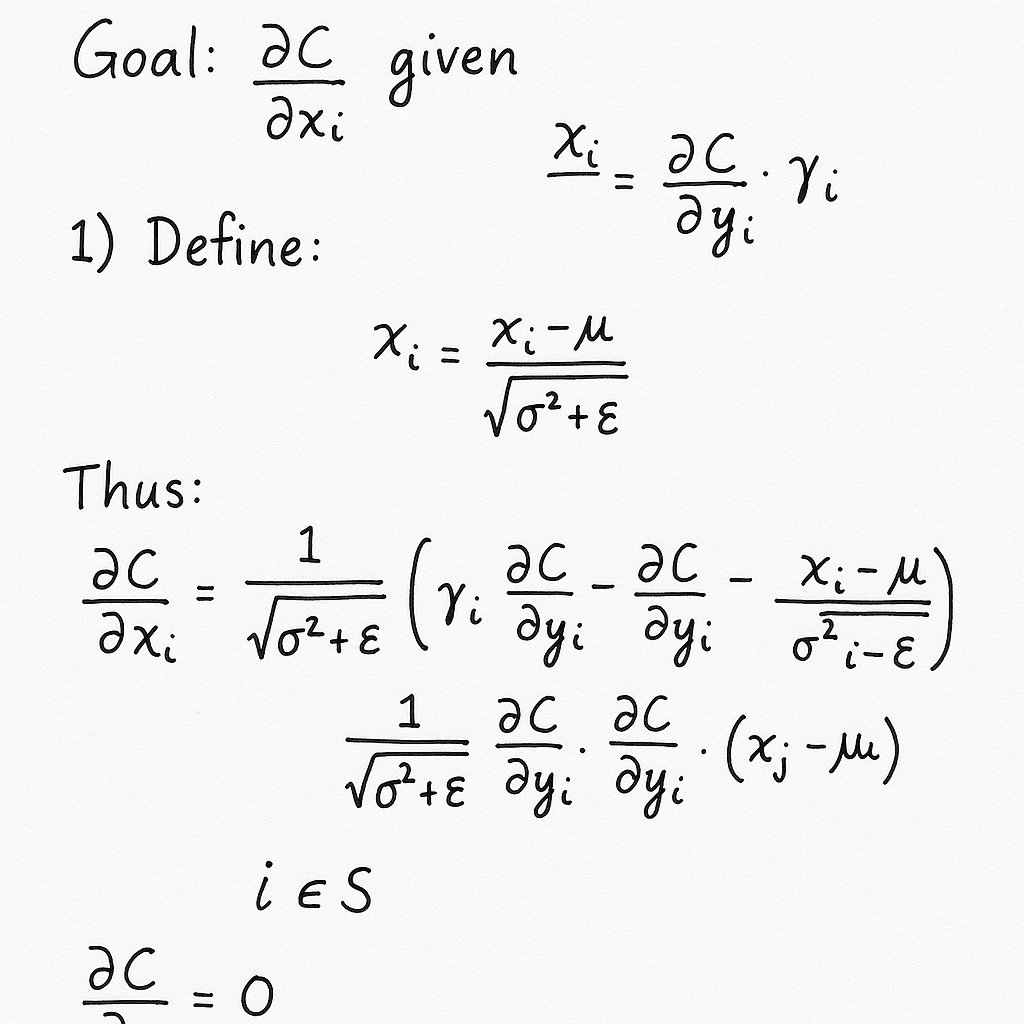 Goal: ∂C/∂xᵢ given
xᵢ = ∂C/∂yᵢ · γᵢ
1) Define:
xᵢ = (xᵢ − μ)/√(σ² + ε)
Thus:
∂C/∂xᵢ = 1/√(σ² + ε) (γᵢ ∂C/∂yᵢ − ∂C/∂yᵢ − (xᵢ − μ)/(σ² i − ε))
1/√(σ² + ε) ∂C/∂yᵢ · ∂C/∂yᵢ · (xⱼ − μ)
i ∈ S
∂C/∂ = 0